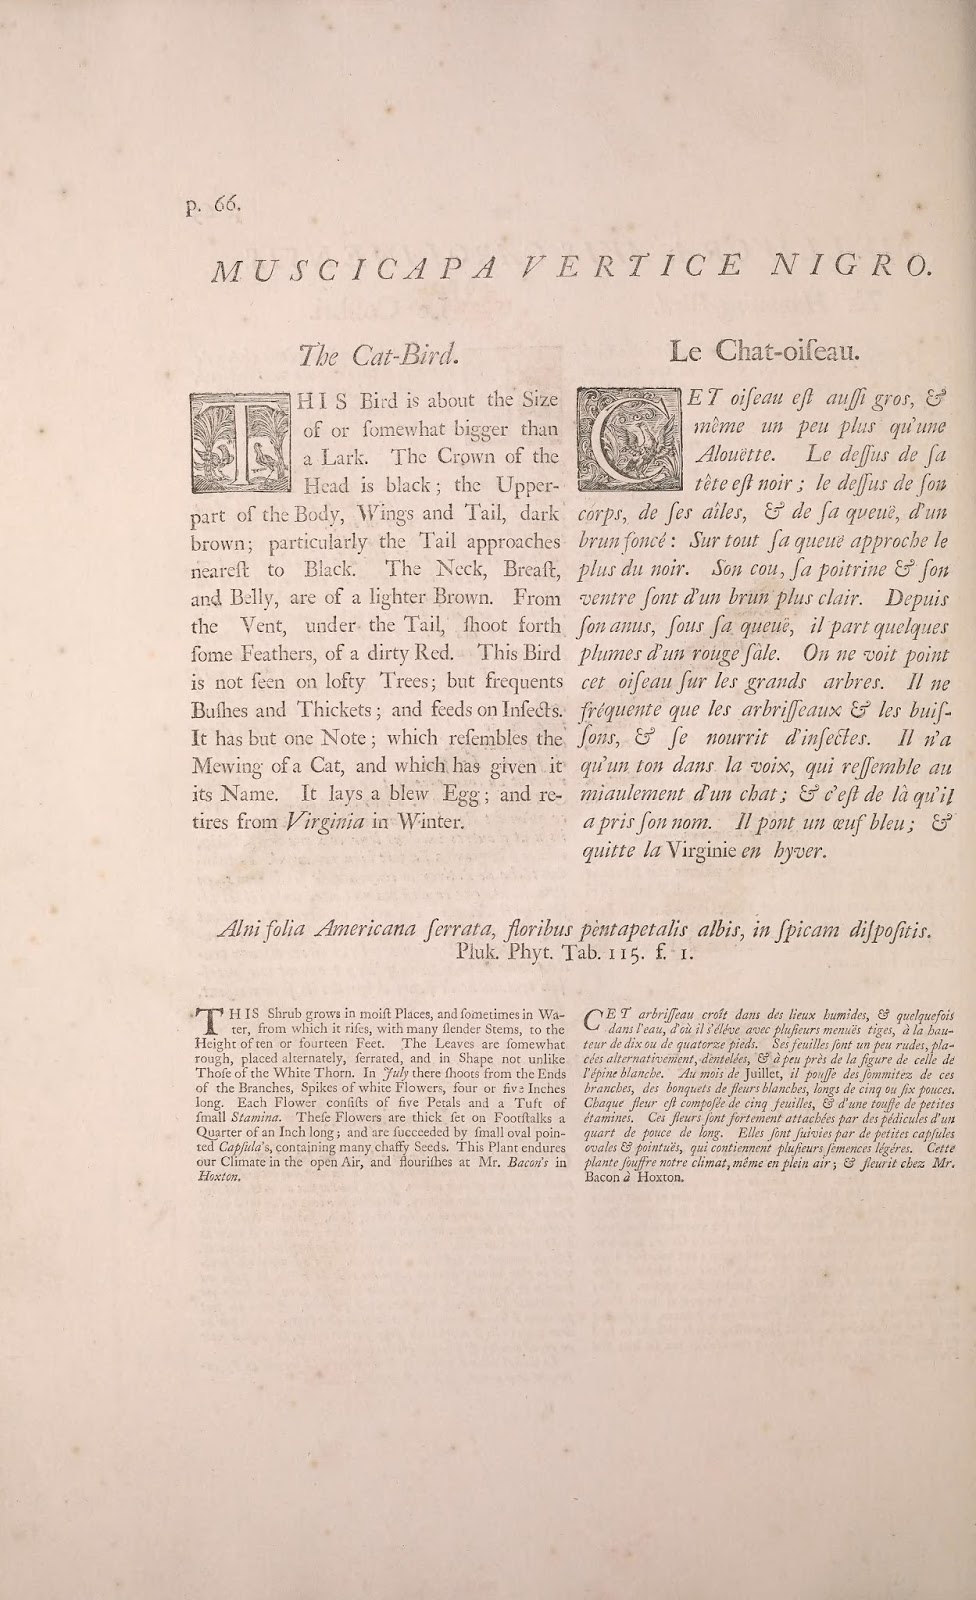 p. 66.
MUSCICAPA VERTICE NIGRO.
The Cat-Bird.
THIS Bird is about the Size
of or ſomewhat bigger than
a Lark. The Crown of the
Head is black; the Upper-
part of the Body, Wings and Tail, dark
brown; particularly the Tail approaches
neareſt to Black. The Neck, Breaſt,
and Belly, are of a lighter Brown. From
the Vent, under the Tail, ſhoot forth
ſome Feathers, of a dirty Red. This Bird
is not ſeen on lofty Trees; but frequents
Buſhes and Thickets; and feeds on Inſects.
It has but one Note; which reſembles the
Mewing of a Cat, and which has given it
its Name. It lays a blew Egg; and re-
tires from Virginia in Winter.
Le Chat-oiſeau.
CET oiſeau eſt auſſi gros, &
même un peu plus qu'une
Alouëtte. Le deſſus de ſa
tête eſt noir; le deſſus de ſon
corps, de ſes aîles, & de ſa queuë, d'un
brun foncé: Sur tout ſa queuë approche le
plus du noir. Son cou, ſa poitrine & ſon
ventre ſont d'un brun plus clair. Depuis
ſon anus, ſous ſa queuë, il part quelques
plumes d'un rouge ſâle. On ne voit point
cet oiſeau ſur les grands arbres. Il ne
fréquente que les arbriſſeaux & les buiſ-
ſons, & ſe nourrit d'inſectes. Il n'a
qu'un ton dans la voix, qui reſſemble au
miaulement d'un chat; & c'eſt de là qu'il
a pris ſon nom. Il pont un œuf bleu; &
quitte la Virginie en hyver.
Alni folia Americana ſerrata, floribus pentapetalis albis, in ſpicam diſpoſitis.
Pluk. Phyt. Tab. 115. f. 1.
THIS Shrub grows in moiſt Places, and ſometimes in Wa-
ter, from which it riſes, with many ſlender Stems, to the
Height of ten or fourteen Feet. The Leaves are ſomewhat
rough, placed alternately, ſerrated, and in Shape not unlike
Thoſe of the White Thorn. In July there ſhoots from the Ends
of the Branches, Spikes of white Flowers, four or five Inches
long. Each Flower conſiſts of five Petals and a Tuft of
ſmall Stamina. Theſe Flowers are thick ſet on Footſtalks a
Quarter of an Inch long; and are ſucceeded by ſmall oval poin-
ted Capſula's, containing many chaffy Seeds. This Plant endures
our Climate in the open Air, and flouriſhes at Mr. Bacon's in
Hoxton.
CET arbriſſeau croît dans des lieux humides, & quelquefois
dans l'eau, d'où il s'éléve avec pluſieurs menuës tiges, à la hau-
teur de dix ou de quatorze pieds. Ses feuilles ſont un peu rudes, pla-
cées alternativement, dentelées, & à peu près de la figure de celle de
l'épine blanche. Au mois de Juillet, il pouſſe des ſommitez de ces
branches, des bonquets de fleurs blanches, longs de cinq ou ſix pouces.
Chaque fleur eſt compoſée de cinq feuilles, & d'une touffe de petites
étamines. Ces fleurs ſont fortement attachées par des pédicules d'un
quart de pouce de long. Elles ſont ſuivies par de petites capſules
ovales & pointuës, qui contiennent pluſieurs ſemences légéres. Cette
plante ſouffre notre climat, même en plein air; & fleurit chez Mr.
Bacon à Hoxton.